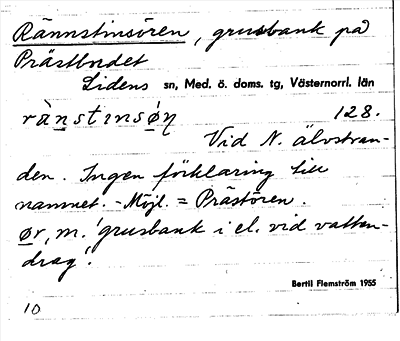 Rännstinsören, grusbank på
Prästbodet
Lidens sn, Med. ö. doms. tg, Västernorrl. län
rànstinsøη 128.
Vid N. älvstran-
den. Ingen förklaring till
namnet. - Möjl. = Prästören.
ør, m. 'grusbank i el. vid vatten-
drag'.
Bertil Flemström 1955
10